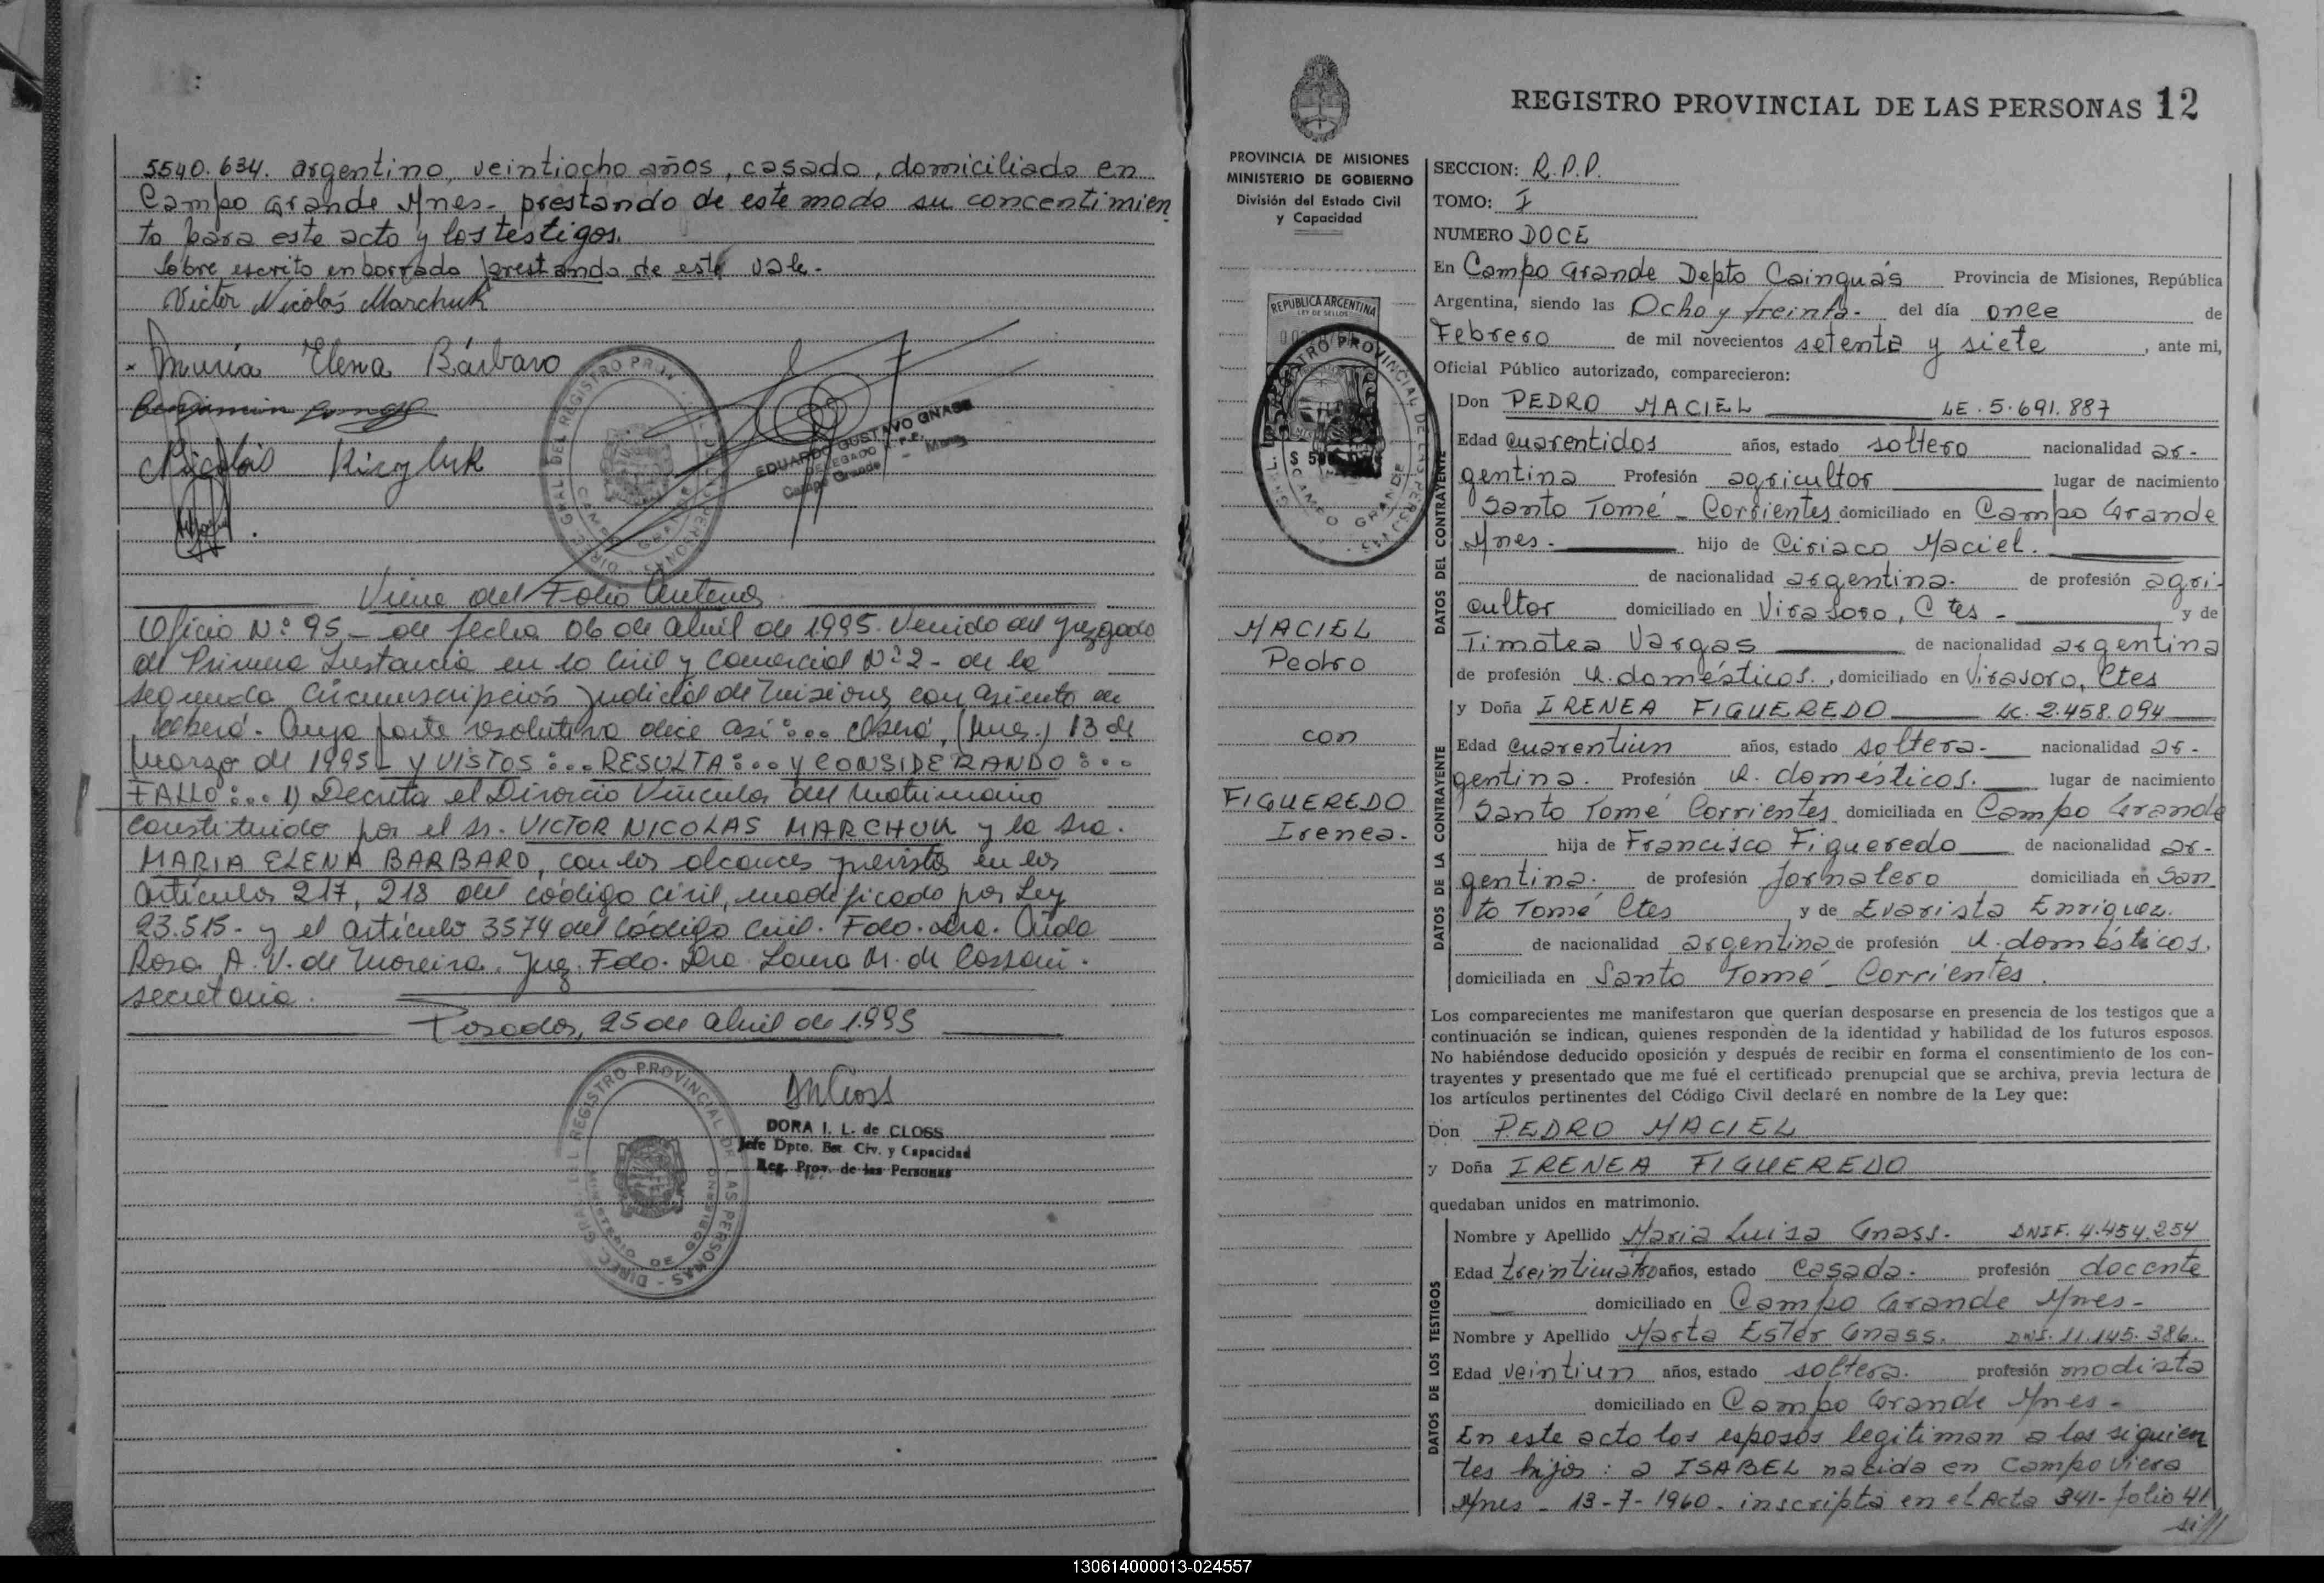 5540.634. argentino, veintiocho años, casado, domiciliado en
Campo Grande Mnes- prestando de este modo su concentimien
to para este acto y los testigos.
Sobre escrito enborrado prestando de este vale.-
Victor Nicolás Marchuk
x María Elena Bárbaro
Benjamin
Nicolás Kizyluk
DIREC. GRAL. DEL REGISTRO PROVINCIAL DE LAS PERSONAS
CAMPO GRANDE
EDUARDO GUSTAVO GNASS
DELEGADO R.P.P.
Campo Grande - Mnes
Viene del Folio Anterior
Oficio N° 95 - de fecha 06 de abril de 1995. Venido del juzgado
de Primera Instancia en lo Civil y Comercial N° 2 - de la
segunda Circunscripción Judicial de Misiones con asiento en
Oberá. Cuya parte resolutiva dice así:... Oberá, (Mnes.) 13 de
Marzo de 1995 - Y VISTOS:... RESULTA:... Y CONSIDERANDO:...
FALLO:... 1) Decreta el Divorcio Vincular del Matrimonio
constituido por el Sr. VICTOR NICOLAS MARCHUK y la Sra.
MARIA ELENA BARBARO, con los alcances previstos en los
artículos 217, 218 del código civil, modificado por Ley
23.515.- y el artículo 3574 del Código Civil. Fdo. Dra. Aída
Rosa A. V. de Moreira. Juez. Fdo. Dra. Laura M. de Cassoni.
secretaria.
Posadas, 25 de abril de 1.995
DORA I. L. de CLOSS
Jefe Dpto. Est. Civ. y Capacidad
Reg. Prov. de las Personas
DIREC. GRAL. DEL REGISTRO PROVINCIAL DE LAS PERSONAS
MINISTERIO DE GOBIERNO
REGISTRO PROVINCIAL DE LAS PERSONAS 12
PROVINCIA DE MISIONES
MINISTERIO DE GOBIERNO
División del Estado Civil
y Capacidad
REPUBLICA ARGENTINA
LEY DE SELLOS
REGISTRO PROVINCIAL DE LAS PERSONAS
CAMPO GRANDE
MACIEL
Pedro
con
FIGUEREDO
Irenea.
SECCION: R.P.P.
TOMO: I
NUMERO DOCE
En Campo Grande Depto Cainguás Provincia de Misiones, República
Argentina, siendo las Ocho y treinta- del día once de
Febrero de mil novecientos setenta y siete, ante mi,
Oficial Público autorizado, comparecieron:
DATOS DEL CONTRAYENTE
Don PEDRO MACIEL LE. 5.691.887
Edad cuarentidos años, estado soltero nacionalidad ar-
gentina Profesión agricultor lugar de nacimiento
Santo Tomé - Corrientes domiciliado en Campo Grande
Mnes.- hijo de Ciriaco Maciel.
de nacionalidad argentina. de profesión agri-
cultor domiciliado en Virasoro, Ctes - y de
Timotea Vargas de nacionalidad argentina
de profesión Q. domésticos., domiciliado en Virasoro, Ctes
DATOS DE LA CONTRAYENTE
y Doña IRENEA FIGUEREDO LC. 2.458.094
Edad cuarentiun años, estado soltera- nacionalidad ar-
gentina. Profesión Q. domésticos. lugar de nacimiento
Santo Tomé Corrientes domiciliada en Campo Grande
hija de Francisco Figueredo de nacionalidad ar-
gentina. de profesión Jornalero domiciliada en San
to Tomé Ctes y de Evarista Enriquez.
de nacionalidad argentina de profesión Q. domésticos.
domiciliada en Santo Tomé - Corrientes.
Los comparecientes me manifestaron que querían desposarse en presencia de los testigos que a
continuación se indican, quienes responden de la identidad y habilidad de los futuros esposos.
No habiéndose deducido oposición y después de recibir en forma el consentimiento de los con-
trayentes y presentado que me fué el certificado prenupcial que se archiva, previa lectura de
los artículos pertinentes del Código Civil declaré en nombre de la Ley que:
Don PEDRO MACIEL
y Doña IRENEA FIGUEREDO
quedaban unidos en matrimonio.
DATOS DE LOS TESTIGOS
Nombre y Apellido Maria Luisa Gnass. DNIF. 4.454.254
Edad treinticuatro años, estado casada. profesión docente
domiciliado en Campo Grande Mnes-
Nombre y Apellido Marta Ester Gnass. DNI. 11.145.386.
Edad veintiun años, estado soltera. profesión modista
domiciliado en Campo Grande Mnes-
En este acto los esposos legitiman a los siguien
tes hijos: a ISABEL nacida en Campo Viera
Mnes - 13-7-1960. inscripta en el Acta 341- folio 41
130614000013-024557